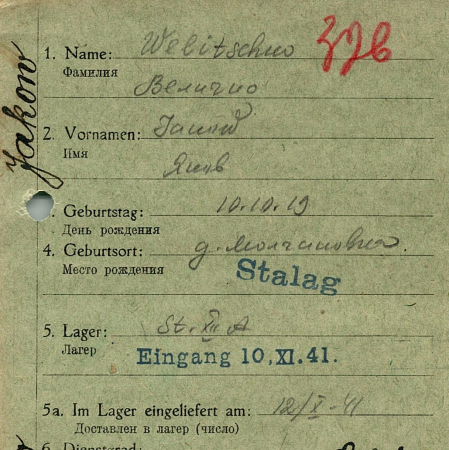 Jakow
1. Name: Welitschno
Фамилия
Величко
2. Vornamen:
Имя
Яков
Geburtstag: 10.10.19
День рождения
4. Geburtsort: д. Молчановка.
Место рождения
Stalag
5. Lager: St. XII A
Лагер
Eingang 10.XI.41.
5a. Im Lager eingeliefert am: 12/X-41
Доставлен в лагер (число)
6. Dienstgrad: